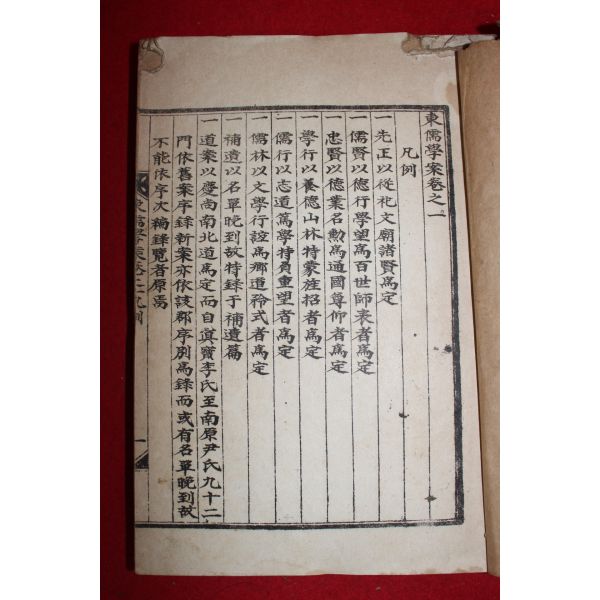 東儒學案卷之一
凡例
一先正以從祀文廟諸賢爲定
一儒賢以德行學望爲百世師表者爲定
一忠賢以德業名勳爲通國尊仰者爲定
一學行以養德山林特蒙旌招者爲定
一儒行以志道篤學持負重望者爲定
一儒林以文學行誼爲鄕道矜式者爲定
一補遺以名單晚到故特錄于補遺篇
一道案以慶尙南北道爲定而自眞寶李氏至南原尹氏九十二
門依舊案序錄新案亦依該郡序別爲錄而或有名單晚到故
不能依序次編錄覽者原焉
凡例
一